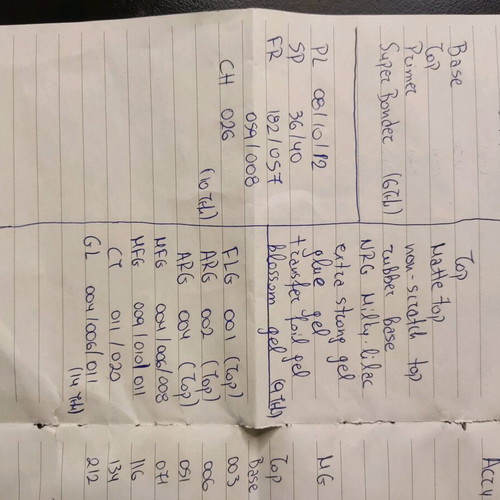 Base
Top
Primer
Super Bonder (6Tth)
PL 08/10/12
SP 36/40
FR 182/057
059/008
CH 026
(10 Tth)
Top
Matte top
non-scratch top
rubber base
NRG Milky-lilac
extra strong gel
glue gel
transfer foil gel
blossom gel (9Tth)
FLG 001 (Top)
ARG 002 (Top)
ARG 004 (Top)
MFG 004/006/008
MFG 009/010/011
CT 011/020
GL 004/006/011
(14 Tth)
MG
Top
Base
003
006
051
071
116
134
212